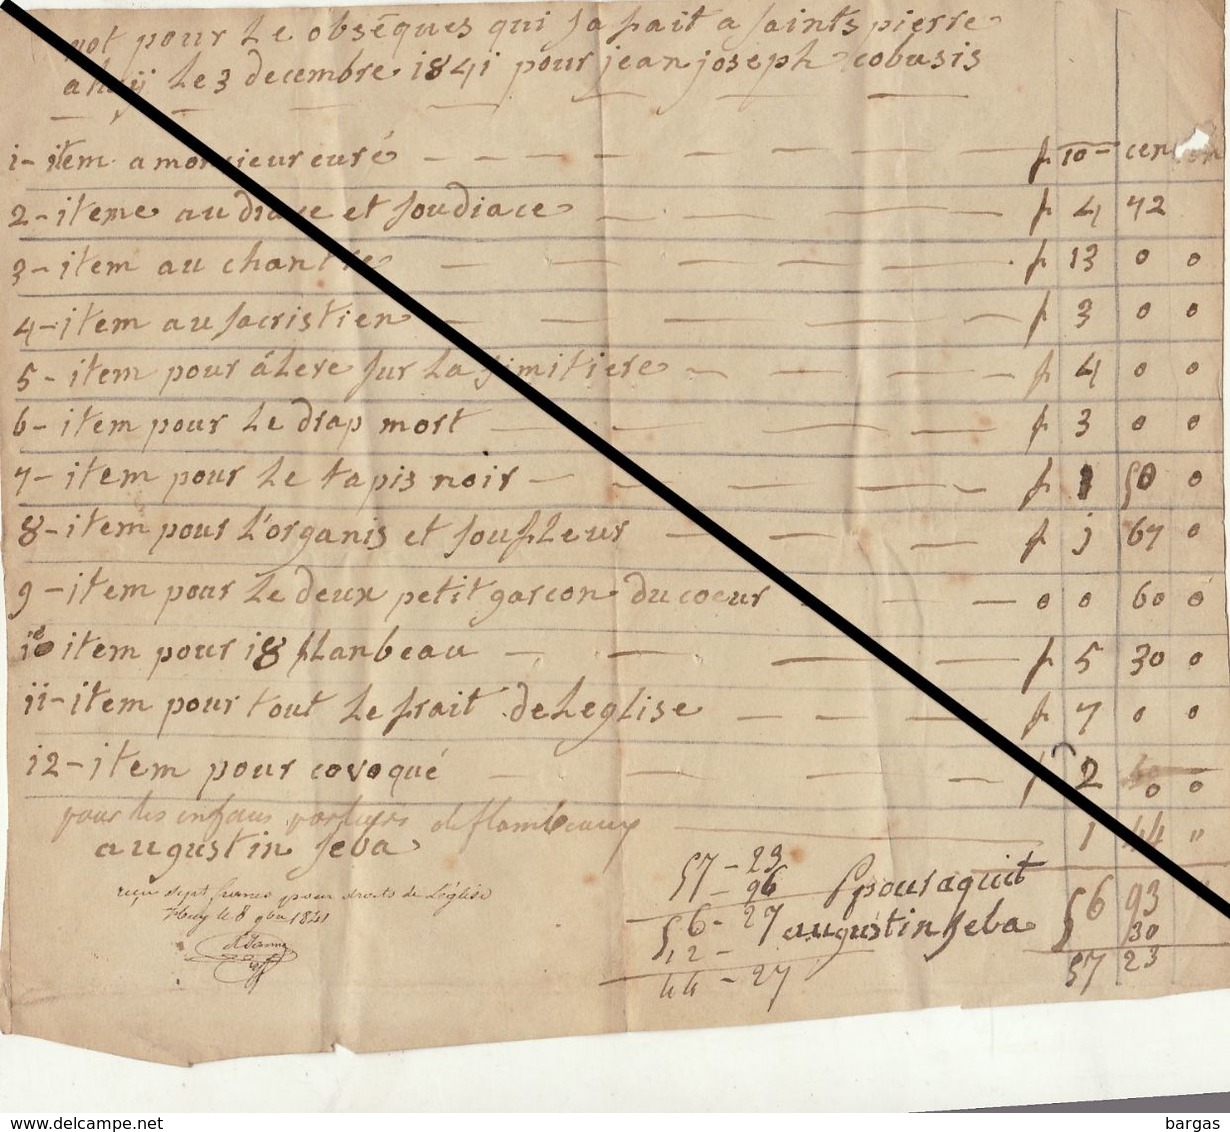 not pour Le obsēques qui sa fait a saints pierre
a huÿ Le 3 decembre 1841 pour jean joseph cobusis
1 - item a monsieur curé f 10 - cen
2 - iteme au diace et soudiace f 4 42
3 - item au chantre f 13 0 0
4 - item au sacristien f 3 0 0
5 - item pour álere sur La simitiere f 4 0 0
6 - item pour Le drap mort f 3 0 0
7 - item pour Le tapis noir f 1 50 0
8 - item pour L'organis et soufLeur f 1 67 0
9 - item pour Le deux petit garcon du coeur 0 0 60 0
10 item pour 18 fLanbeau f 5 30 0
11 - item pour tout Le frait de LegLise f 7 0 0
12 - item pour covoqué f 2 0 0
pour les enfans porteurs de flambeaux 1 44 "
augustin seba
reçu sept francs pour droits de L'église
Huy le 8 9bre 1841
57 - 23
- 96
56 - 27
12 -
44 - 27
pour aquit
augustin seba
56 93
30
57 23
bargas